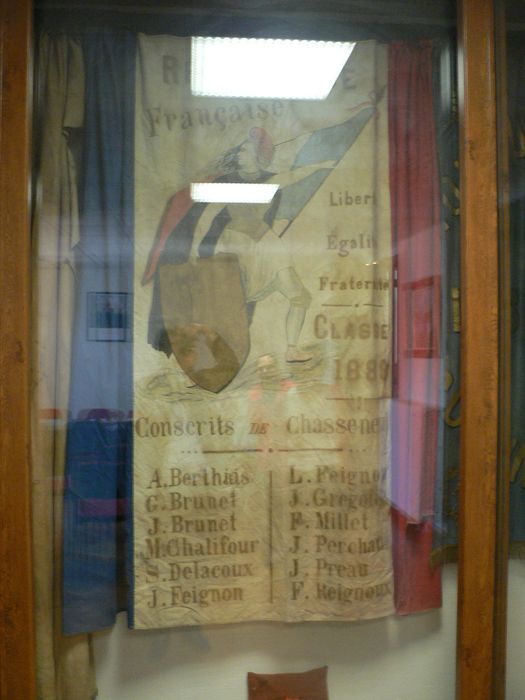 Française
Liber
Égali
Fraternité
CLASSE
1889
Conscrits DE Chasseneu
A. Berthias
G. Brunet
J. Brunet
M. Chalifour
S. Delacoux
J. Feignon
L. Feignon
J. Gregoi
F. Millet
J. Perchat
J. Preau
F. Reignoux